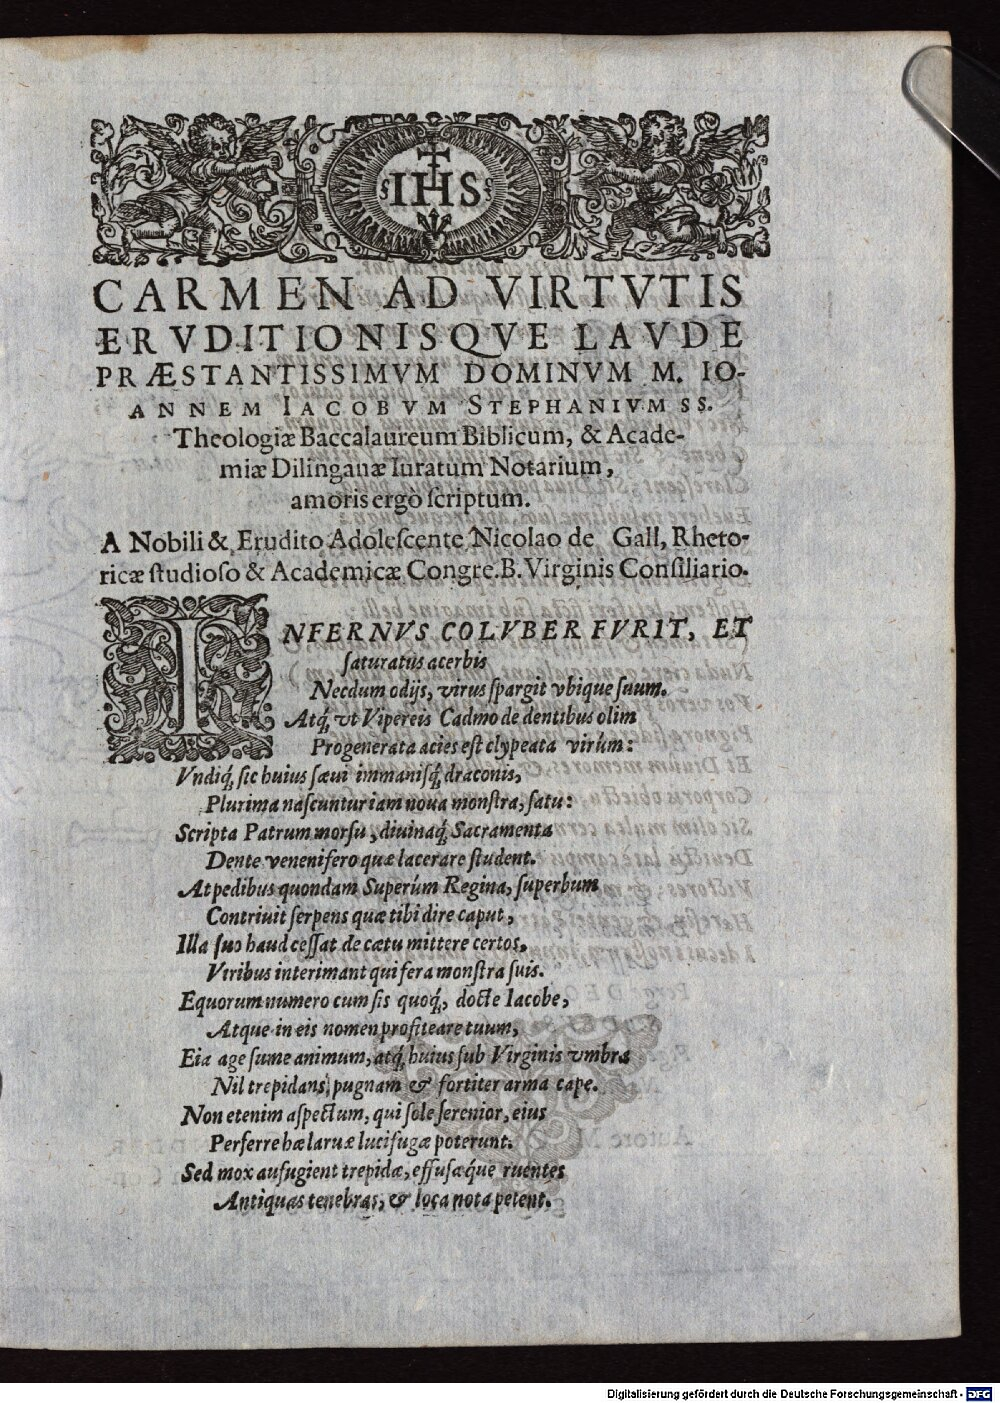 IHS
CARMEN AD VIRTVTIS
ERVDITIONISQVE LAVDE
PRÆSTANTISSIMVM DOMINVM M. IO-
ANNEM IACOBVM STEPHANIVM SS.
Theologiæ Baccalaureum Biblicum, & Acade-
miæ Dilinganæ Iuratum Notarium,
amoris ergo scriptum.
A Nobili & Erudito Adolescente Nicolao de Gall, Rheto-
ricæ studioso & Academicæ Congre. B. Virginis Consiliario.
INFERNVS COLVBER FVRIT, ET
saturatus acerbis
Necdum odijs, virus spargit vbique suum.
Atq́ vt Vipereis Cadmo de dentibus olim
Progenerata acies est clypeata virûm:
Vndiq́ sic huius sæui immanisq́ draconis,
Plurima nascuntur iam noua monstra, satu:
Scripta Patrum morsu, diuinaq́ Sacramenta
Dente venenifero quæ lacerare student.
At pedibus quondam Superûm Regina, superbum
Contriuit serpens quæ tibi dire caput,
Illa suo haud cessat de cœtu mittere certos,
Viribus interimant qui fera monstra suis.
Equorum numero cum sis quoq́, docte Iacobe,
Atque in eis nomen profiteare tuum,
Eia age sume animum, atq́ huius sub Virginis vmbra
Nil trepidans, pugnam & fortiter arma cape.
Non etenim aspectum, qui sole serenior, eius
Perferre hæ laruæ lucifugæ poterunt.
Sed mox aufugient trepidæ, effusæq́ue ruentes
Antiquas tenebras, & loca nota petent.
Digitalisierung gefördert durch die Deutsche Forschungsgemeinschaft - DFG